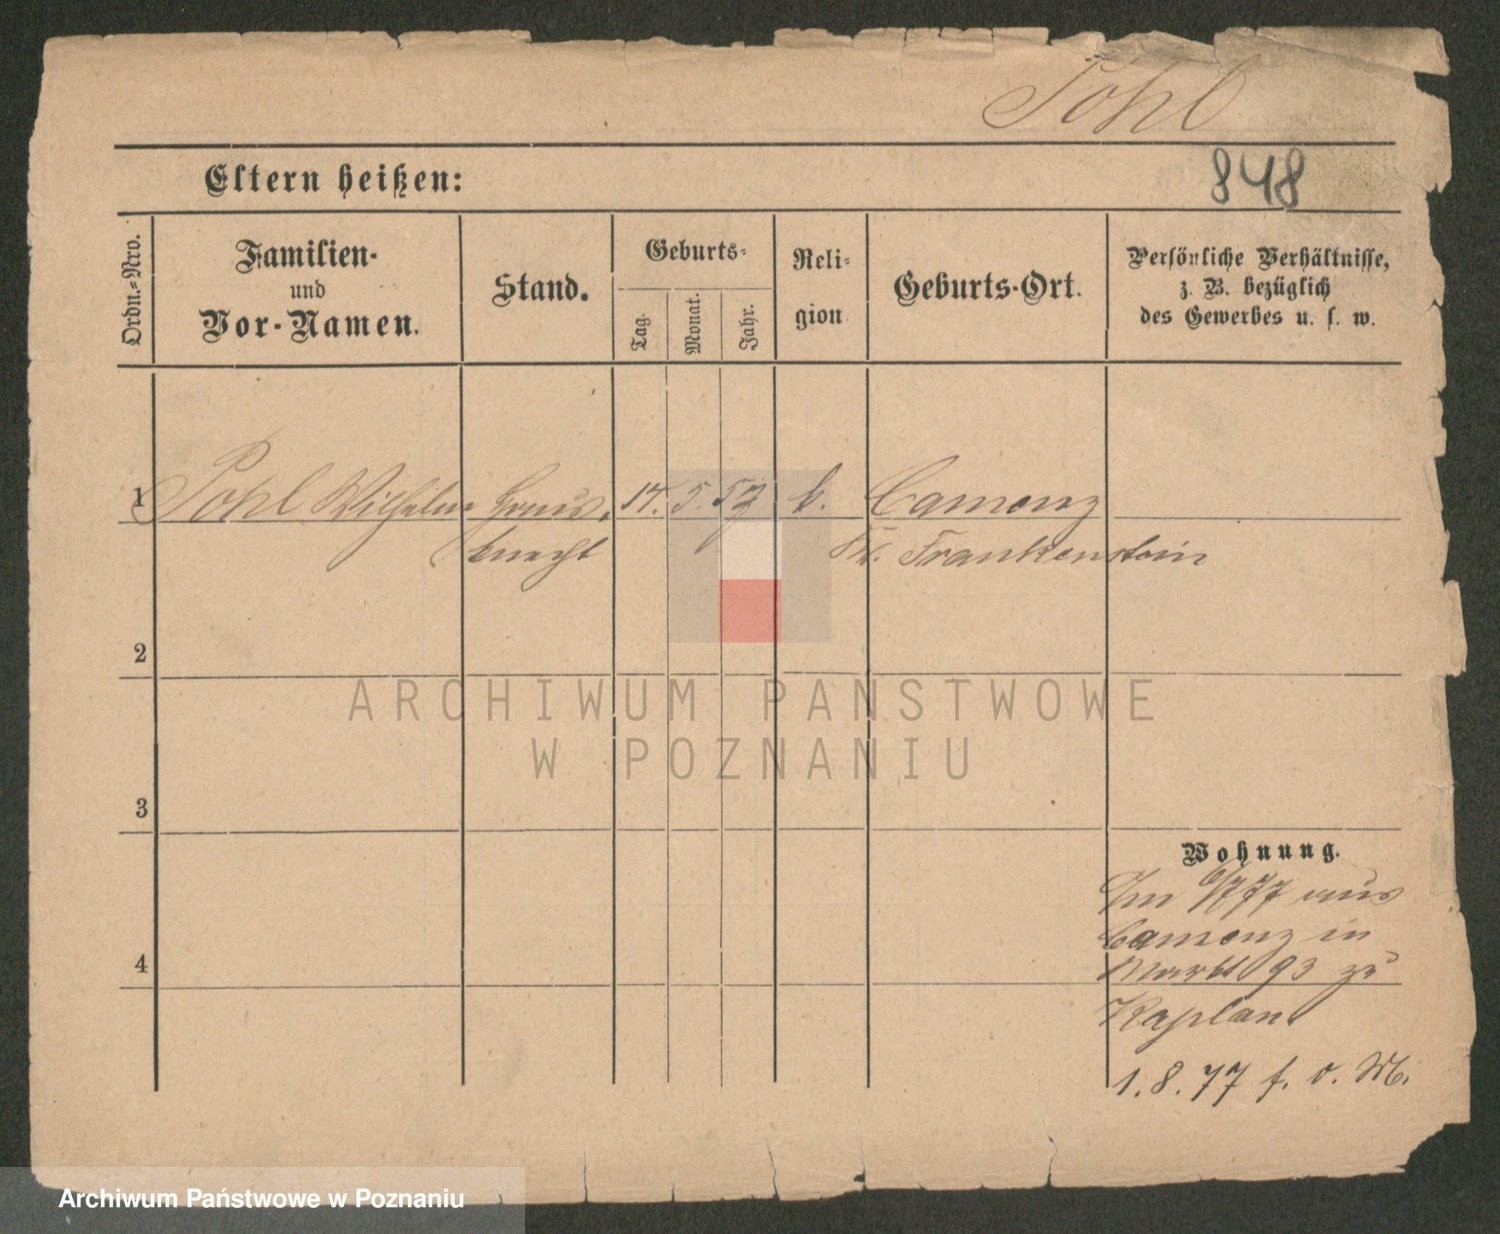 Pohl
848
Eltern heißen:
Ordn.-Nro.
Familien-
und
Vor-Namen.
Stand.
Geburts-
Tag.
Monat.
Jahr.
Reli-
gion
Geburts-Ort.
Persönliche Verhältnisse,
z. B. bezüglich
des Gewerbes u. s. w.
1 Pohl Wilhelm Haus- 5. k. Camenz
knecht Kr. Frankenstein
2
ARCHIWUM PANSTWOWE
W POZNANIU
3
Wohnung.
Im 6/7 77 aus
Camenz in
Markt 93 zu
4
Kaplan
1. 8. 77 f. v. M.
Archiwum Państwowe w Poznaniu